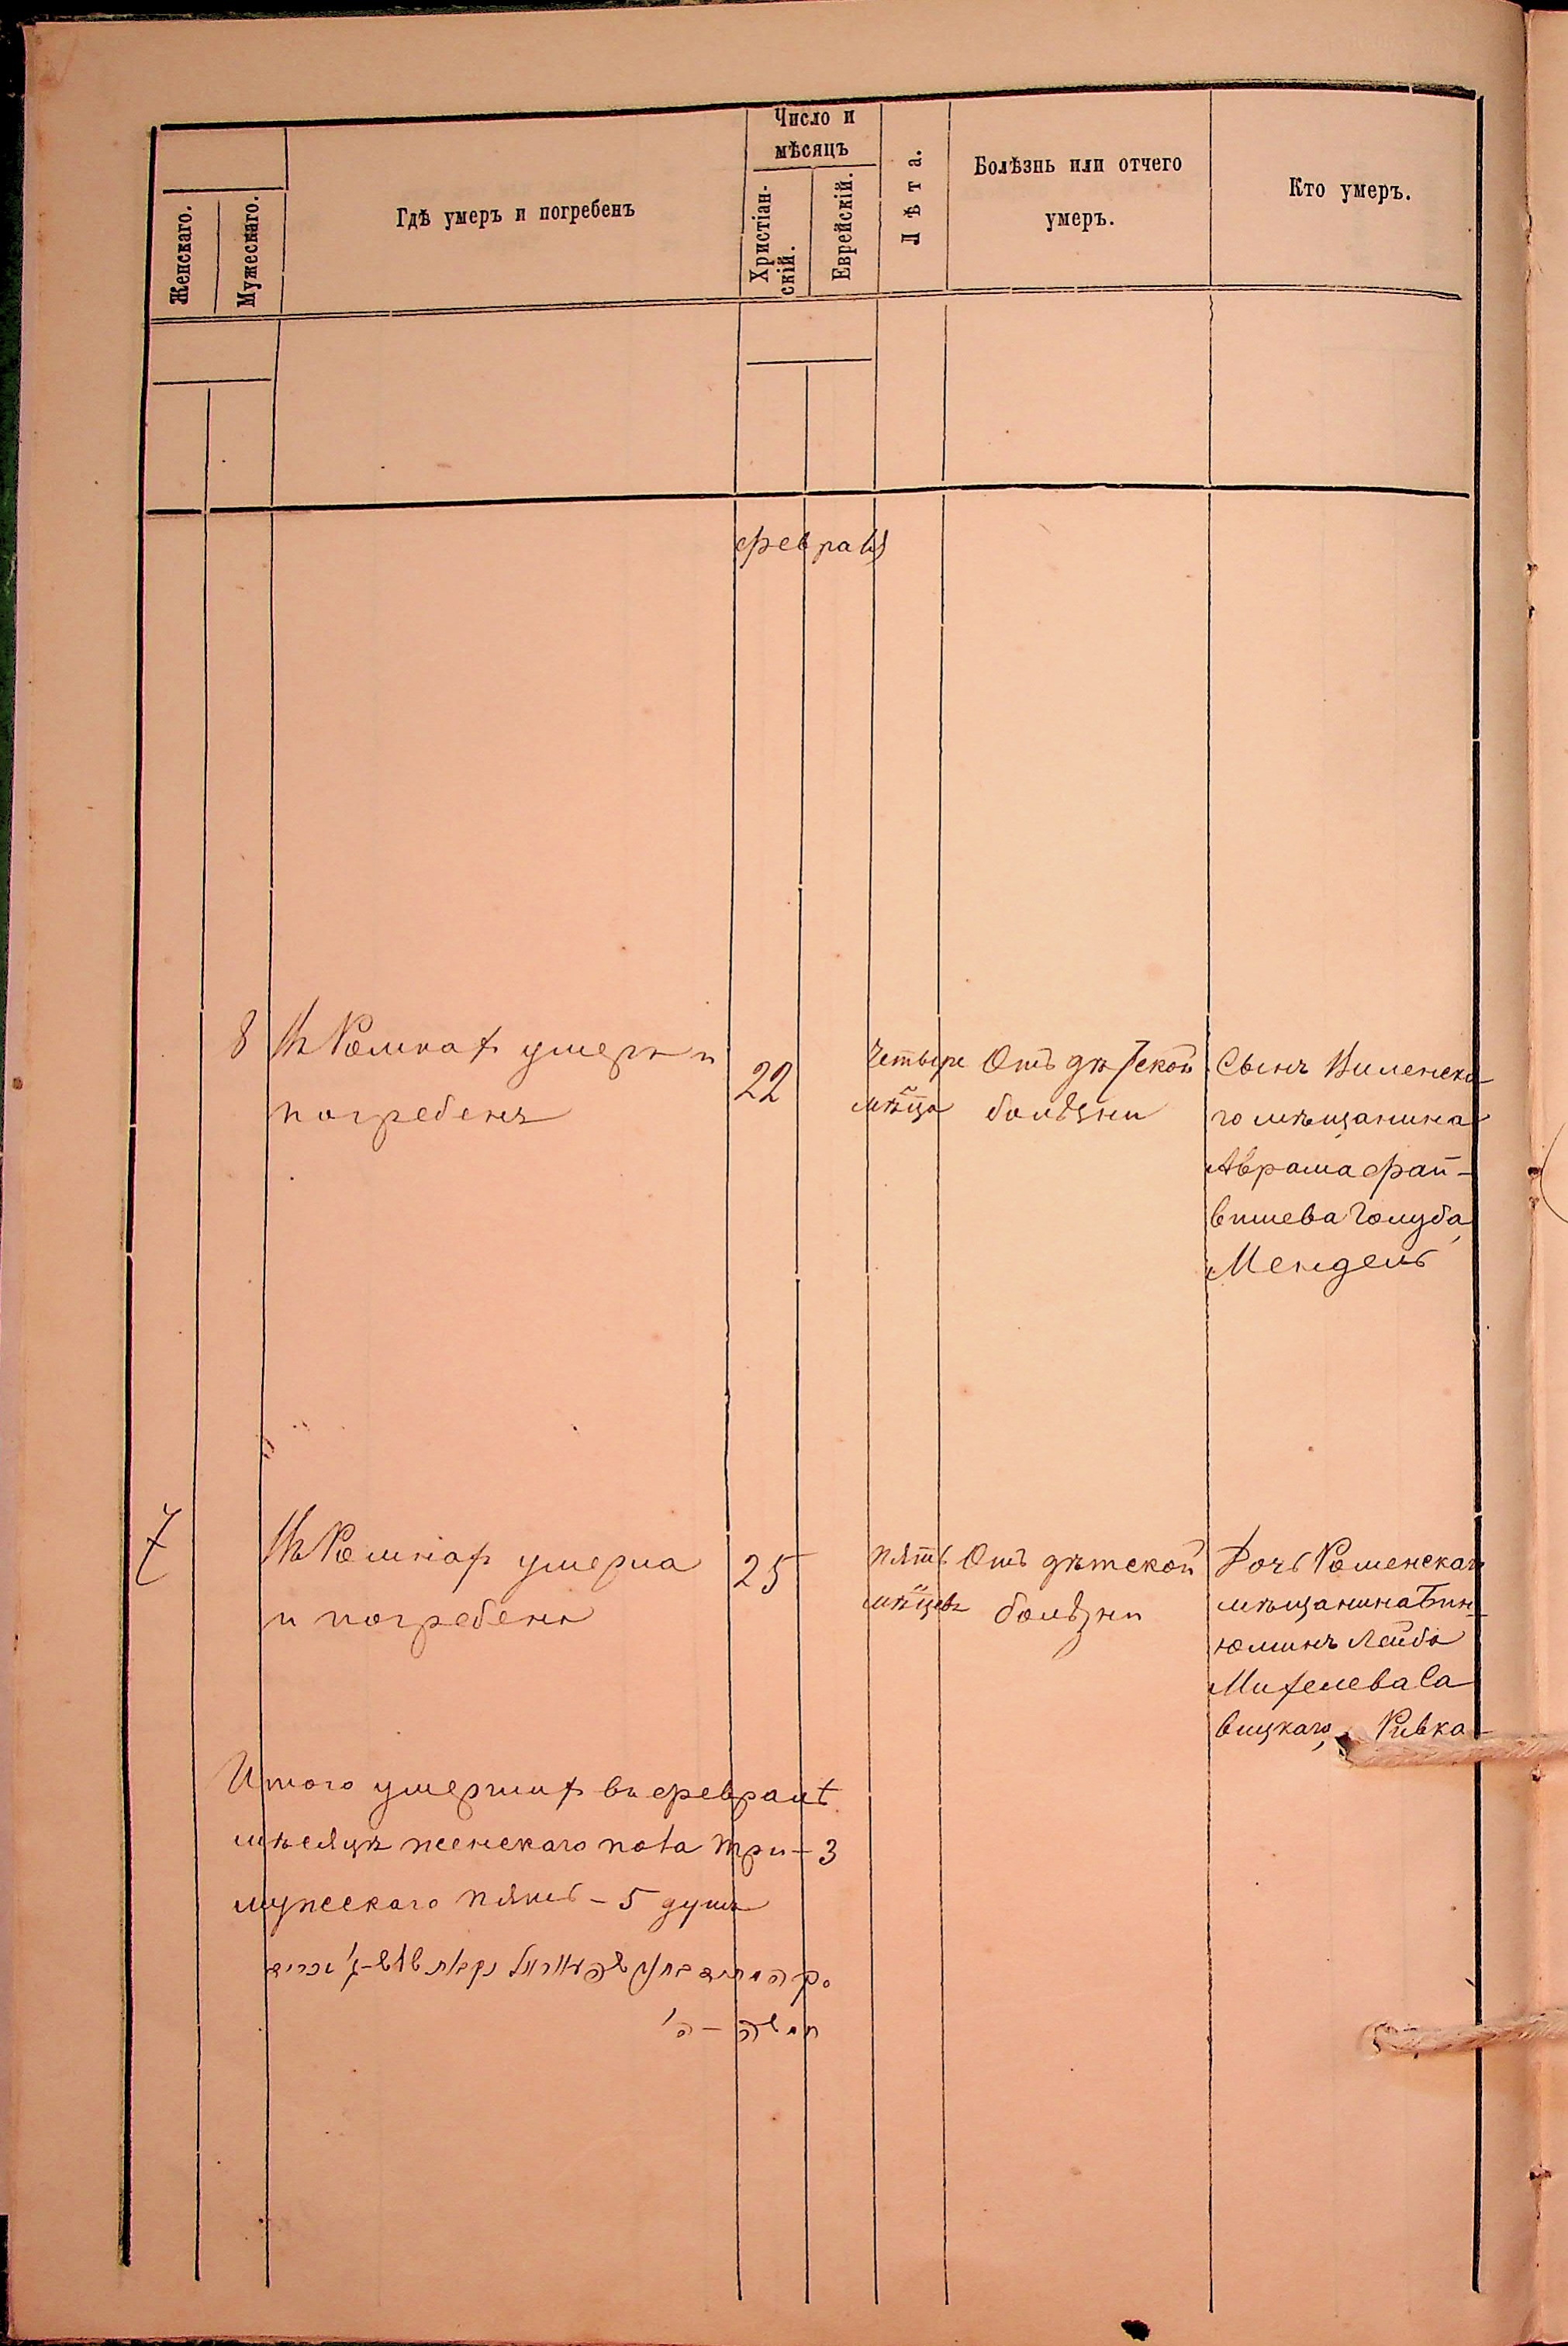 Число и
мѣсяцъ
Женскаго.
Мужескаго.
Гдѣ умеръ и погребенъ
Христіан-
скій.
Еврейскій.
Лѣта.
Болѣзнь или отчего
умеръ.
Кто умеръ.
февраля
8
Въ Ромнах умеръ и
погребенъ
22
Четыре
мѣца
Отъ дѣтской
болѣзни
Сынъ Виленска
го мѣщанина
Аврама Фай-
вишева Голуба,
Мендель
7
Въ Ромнах умерла
и погребена
25
пять
мѣцевъ
Отъ дѣтской
болѣзни
Дочь Роменскаго
мѣщанина Бин
юминъ Лейба
Михелева Са
вицкаго, Ривка
Итого умерших въ февралѣ
мѣсяцѣ женскаго пола три - 3
мужескаго пять - 5 душъ